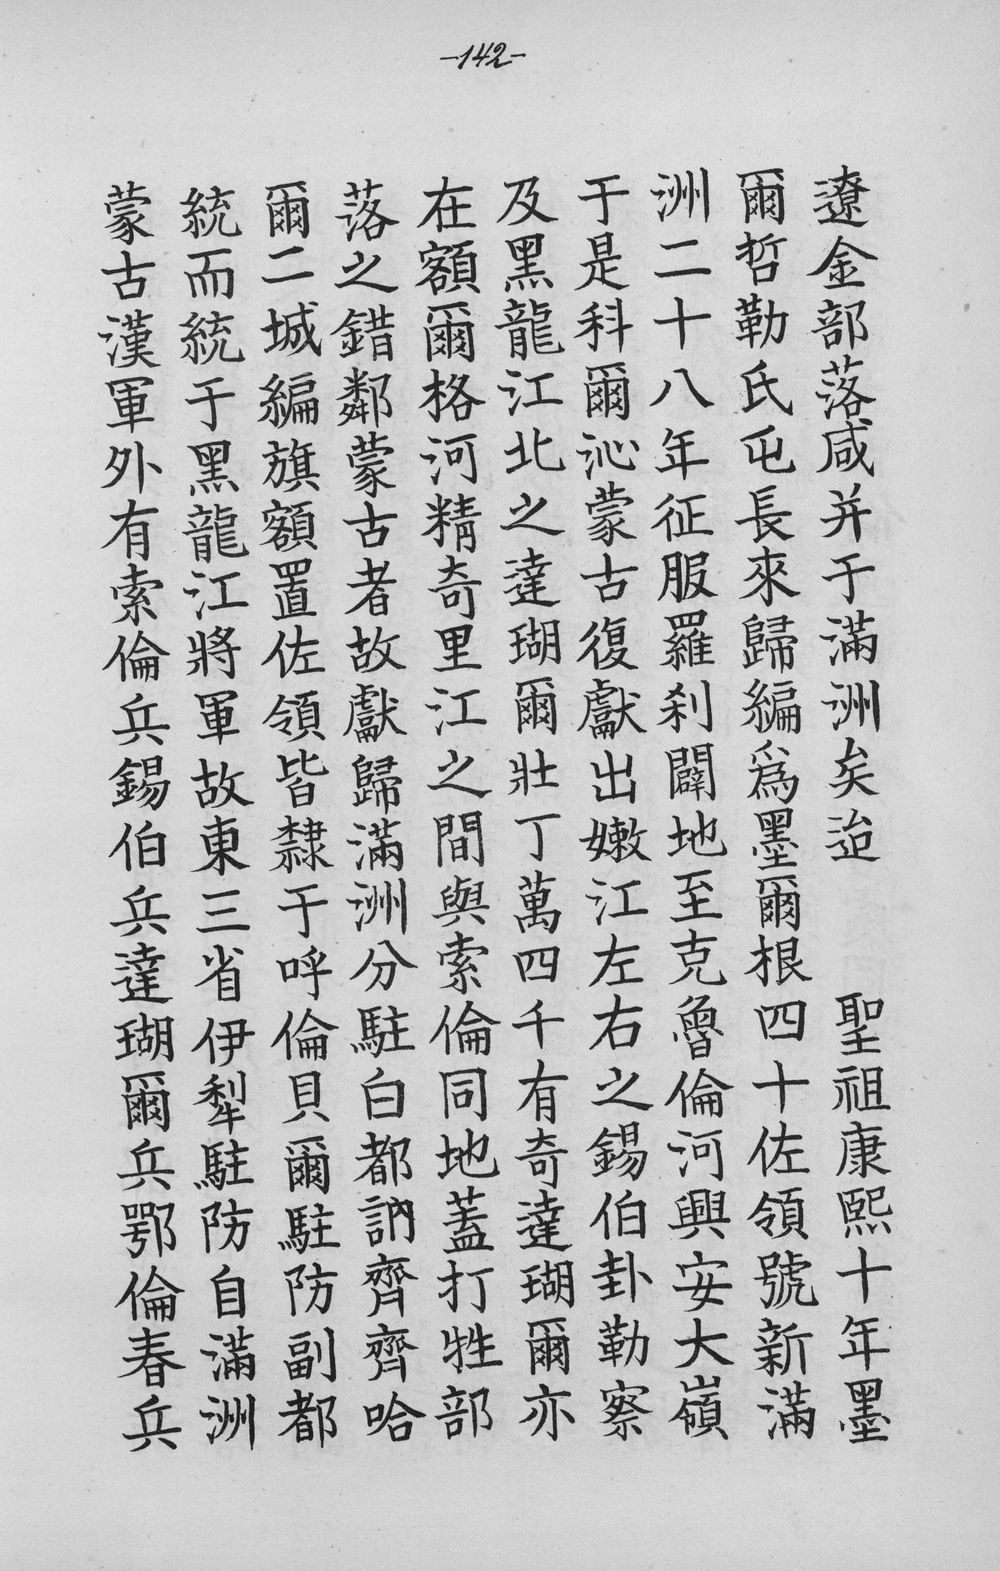 -142-
遼金部落咸并于滿洲矣迨　聖祖康熙十年墨
爾哲勒氏屯長來歸編爲墨爾根四十佐領號新滿
洲二十八年征服羅刹闢地至克魯倫河興安大嶺
于是科爾沁蒙古復獻出嫩江左右之錫伯卦勒察
及黑龍江北之達瑚爾壯丁萬四千有奇達瑚爾亦
在額爾格河精奇里江之間與索倫同地蓋打牲部
落之錯鄰蒙古者故獻歸滿洲分駐白都訥齊齊哈
爾二城編旗額置佐領皆隸于呼倫貝爾駐防副都
統而統于黑龍江將軍故東三省伊犁駐防自滿洲
蒙古漢軍外有索倫兵錫伯兵達瑚爾兵鄂倫春兵